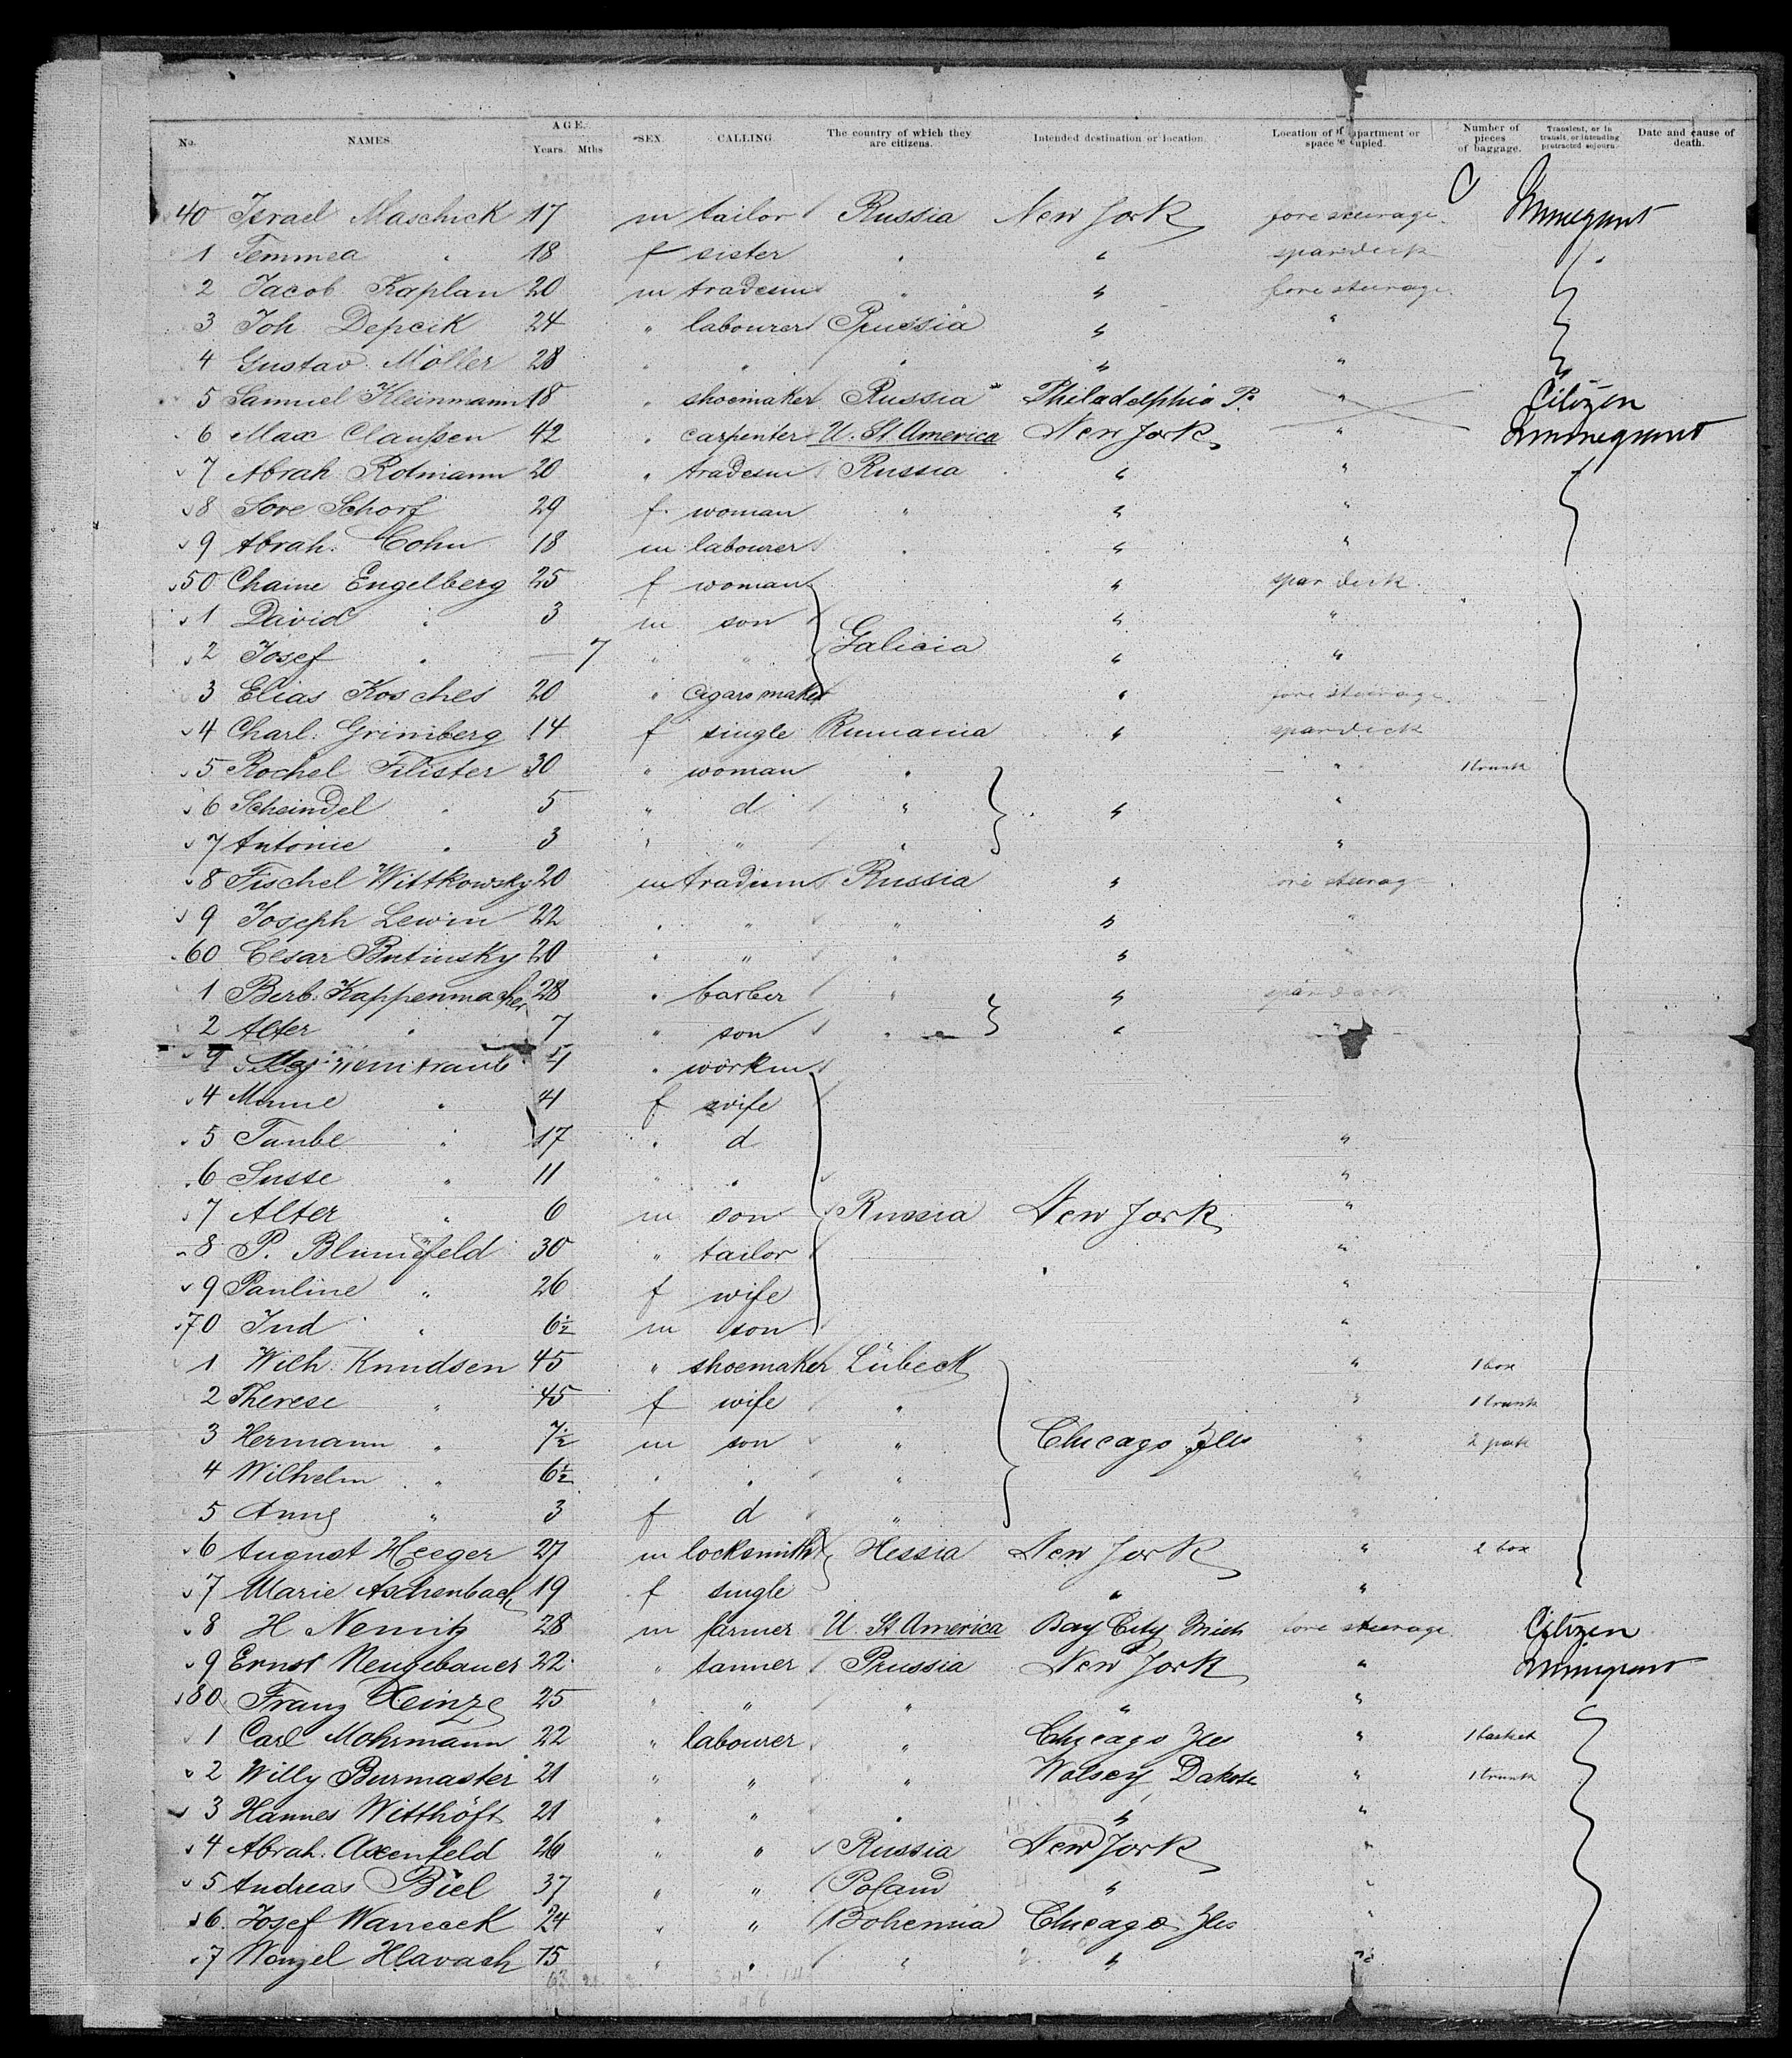 No. NAMES. AGE. Years. Mths SEX. CALLING. The country of which they are citizens. Intended destination or location. Location of partment or space cupied. Number of pieces of baggage. Transient, or in transit, or intending protracted sojourn. Date and cause of death.
40 Israel Maschick 17 m tailor Russia New York fore steerage Immegrant
1 Temmea " 18 f sister " " spardeck "
2 Jacob Kaplan 20 m tradesm " " fore steerage
3 Joh Depcik 24 " labourer Prussia " "
4 Gustav Möller 28 " " " " "
5 Samuel Kleinmann 18 " shoemaker Russia Philadelphia Pa "  Citizen
6 Max Claussen 42 " carpenter U. St. America New York " Immegrant
7 Abrah Rotmann 20 " tradesm Russia " "
8 Sore Schorf 29 f. woman " " "
9 Abrah. Cohn 18 m labourer " " "
50 Chaine Engelberg 25 f woman " spardeck
1 David " 3 m son " "
2 Josef " — 7 " " Galicia " "
3 Elias Kosches 20 " cigars maker " fore steerage
4 Charl. Grimberg 14 f single Rumania " spardeck
5 Rochel Filister 30 " woman " " 1 trunk
6 Scheindel " 5 " d " " "
7 Antonie " 3 " " " "
8 Fischel Wittkowsky 20 m tradesm Russia " fore steerage
9 Joseph Lewin 22 " " " " "
60 Cesar Butinsky 20 " " " " "
1 Berb. Kappenmacher 28 " barber " " spardeck
2 Alter " 7 " son " " "
" workm
4 " 41 f wife
5 Taube " 17 " d "
6 Susse " 11 " " "
7 Alter " 6 m son Russia New York "
8 P. Blumefeld 30 " tailor "
9 Pauline " 26 f wife "
70 Jud " 6½ m son "
1 Wilh. Knudsen 45 " shoemaker Lübeck " 1 box
2 Therese " 45 f wife " " 1 trunk
3 Hermann " 7½ m son " Chicago Ills " 2 pack
4 Wilhelm " 6½ " " " "
5 Anna " 3 f d " "
6 August Heeger 27 m locksmith Hessia New York " 2 box
7 Marie Aschenbach 19 f single " "
8 H Nemitz 28 m farmer U. St. America Bay City Mich fore steerage Citizen
9 Ernst Neugebauer 22 " tanner Prussia New York " Immigrant
80 Franz Heinze 25 " " " " "
1 Carl Mohrmann 22 " labourer " Chicago Ills " 1 basket
2 Willy Burmaster 21 " " " Wolsey Dakota " 1 trunk
3 Hannes Witthöft 21 " " " " "
4 Abrah. Axenfeld 26 " " Russia New York "
5 Andreas Biel 37 " " Poland " "
6. Josef Wanecek 24 " " Bohemia Chicago Ills "
7 Wenzel Hlavach 15 " " " " "